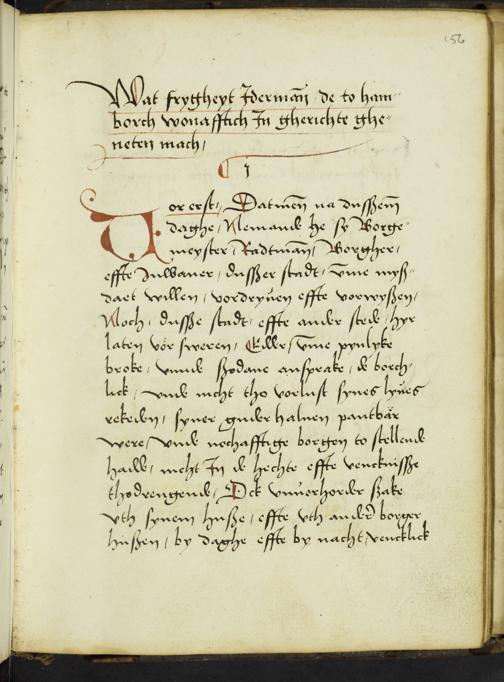 156
Wat frygheyt Jderman̄ · de to ham-
borch wonafftich Jn gherichte ghe-
neten mach /
1
Vor erst / Datmen̄ na dusßem̄
daghe / Nemande he sy Borge
meyster / Radtman̄ / Borgher /
effte Inwaner / dusßer stadt / vm̄e mysß-
daet willen / vordryuen effte vorwysßen /
Noch / dusße stadt / effte ander stede / hyr
laten vör sweren / Edder / vm̄e pynlyke
broke / vnde sodane ansprake / de borch-
lick / vnde nicht tho vorlust synes lyues
rekeden / syner guder haluen pantbǎr
were / vnde nochafftige borgen to stellende
hadde / nicht Jn de hechte effte vencknisße
thodrengende / Ock vnuerhorder sake
vth synem husße / effte vth ander borger
husßen / by daghe effte by nacht / vencklick